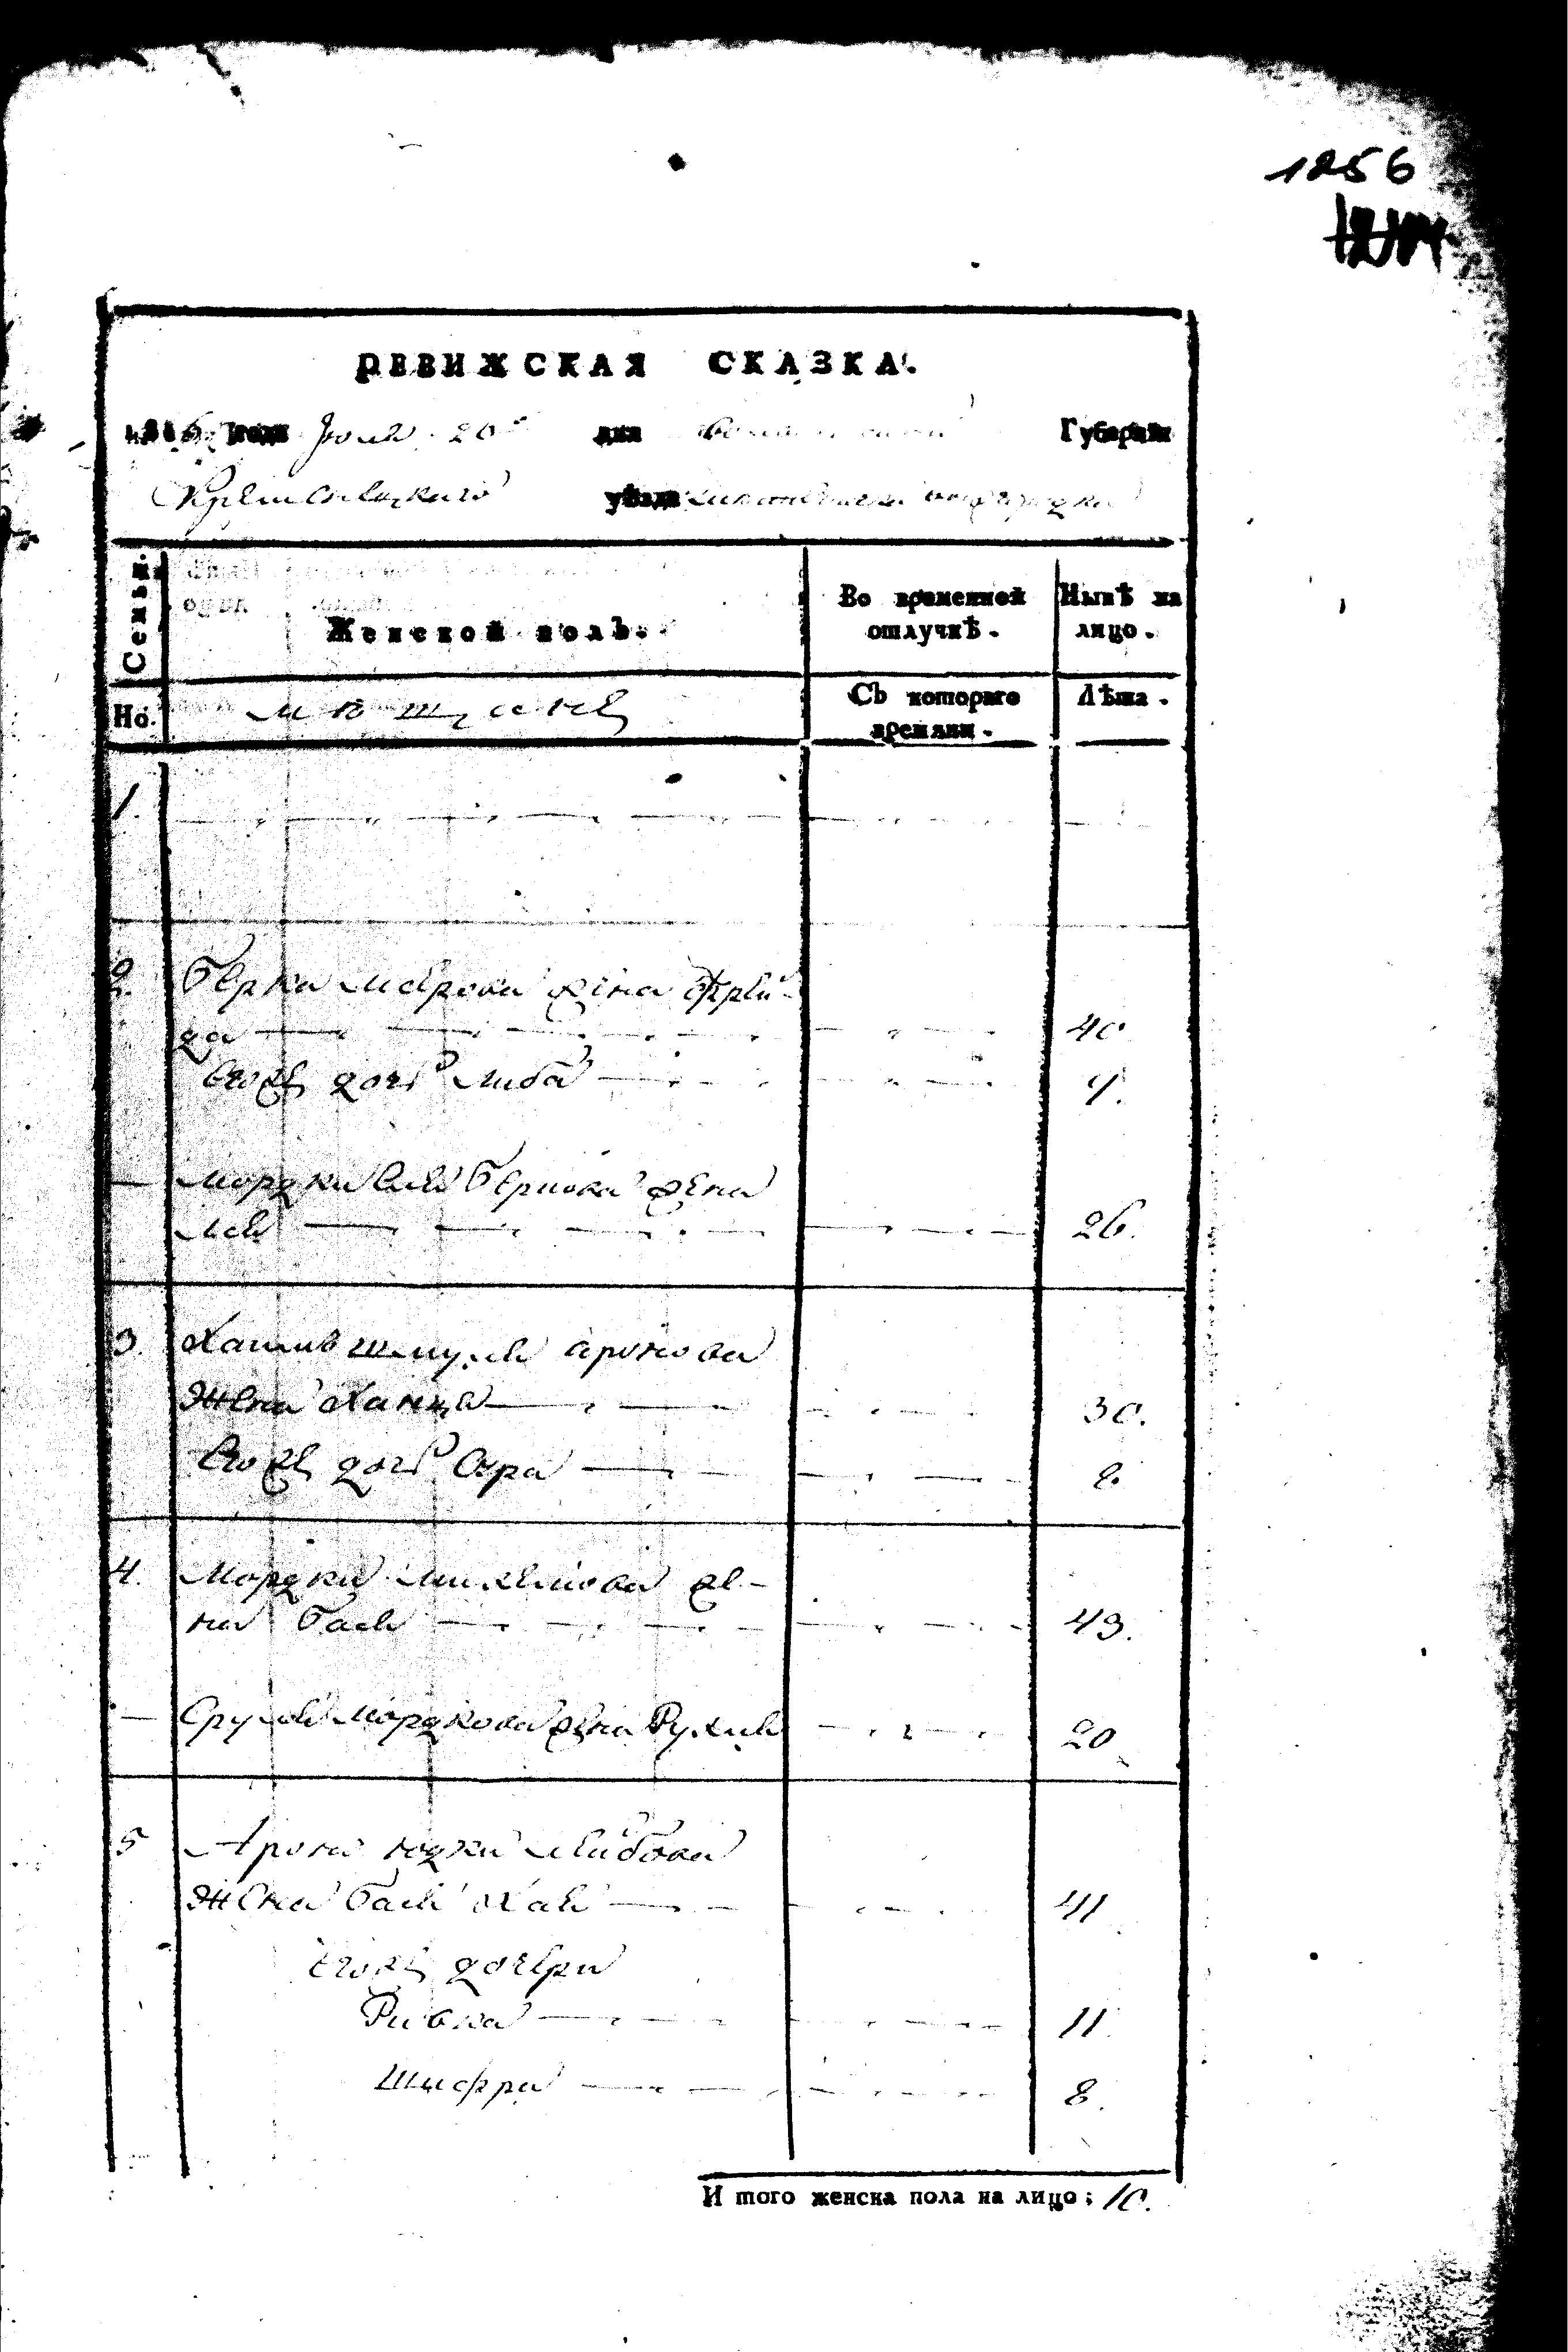 1256
РЕВИЖСКАЯ СКАЗКА.
1816 года Июля 20 дня Губернии
Кременецкаго уѣзда
Семьи.
Женской полъ.
Во временной отлучкѣ.
Нынѣ на лицо.
Но.
мѣщане
Съ котораго времяни.
Лѣта.
1.
2. Берка Меерова жена Фрей-
да 40
Его же дочь Либа 9.
Мордки Беркова жена
Лея 26.
3. Хаима Шмуля Аронова
Жена Ханця 30.
Его же дочь Сура 2.
4. Мордки же-
на Бася 49.
Сруля Мордкова жена Рухля 20
5 Арона Юдки Лейбова
Жена Бася Хая 41
Его же дочери
Ривка 11.
Шифра 8.
И того женска пола на лицо: 10.